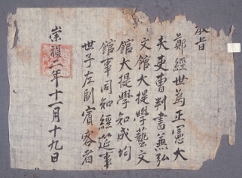 敎旨
鄭經世爲正憲大
夫吏曹判書兼弘
文館大提學藝文
館大提學知成均
館事同知經筵事
世子左副賓客者
崇禎二年十一月十九日